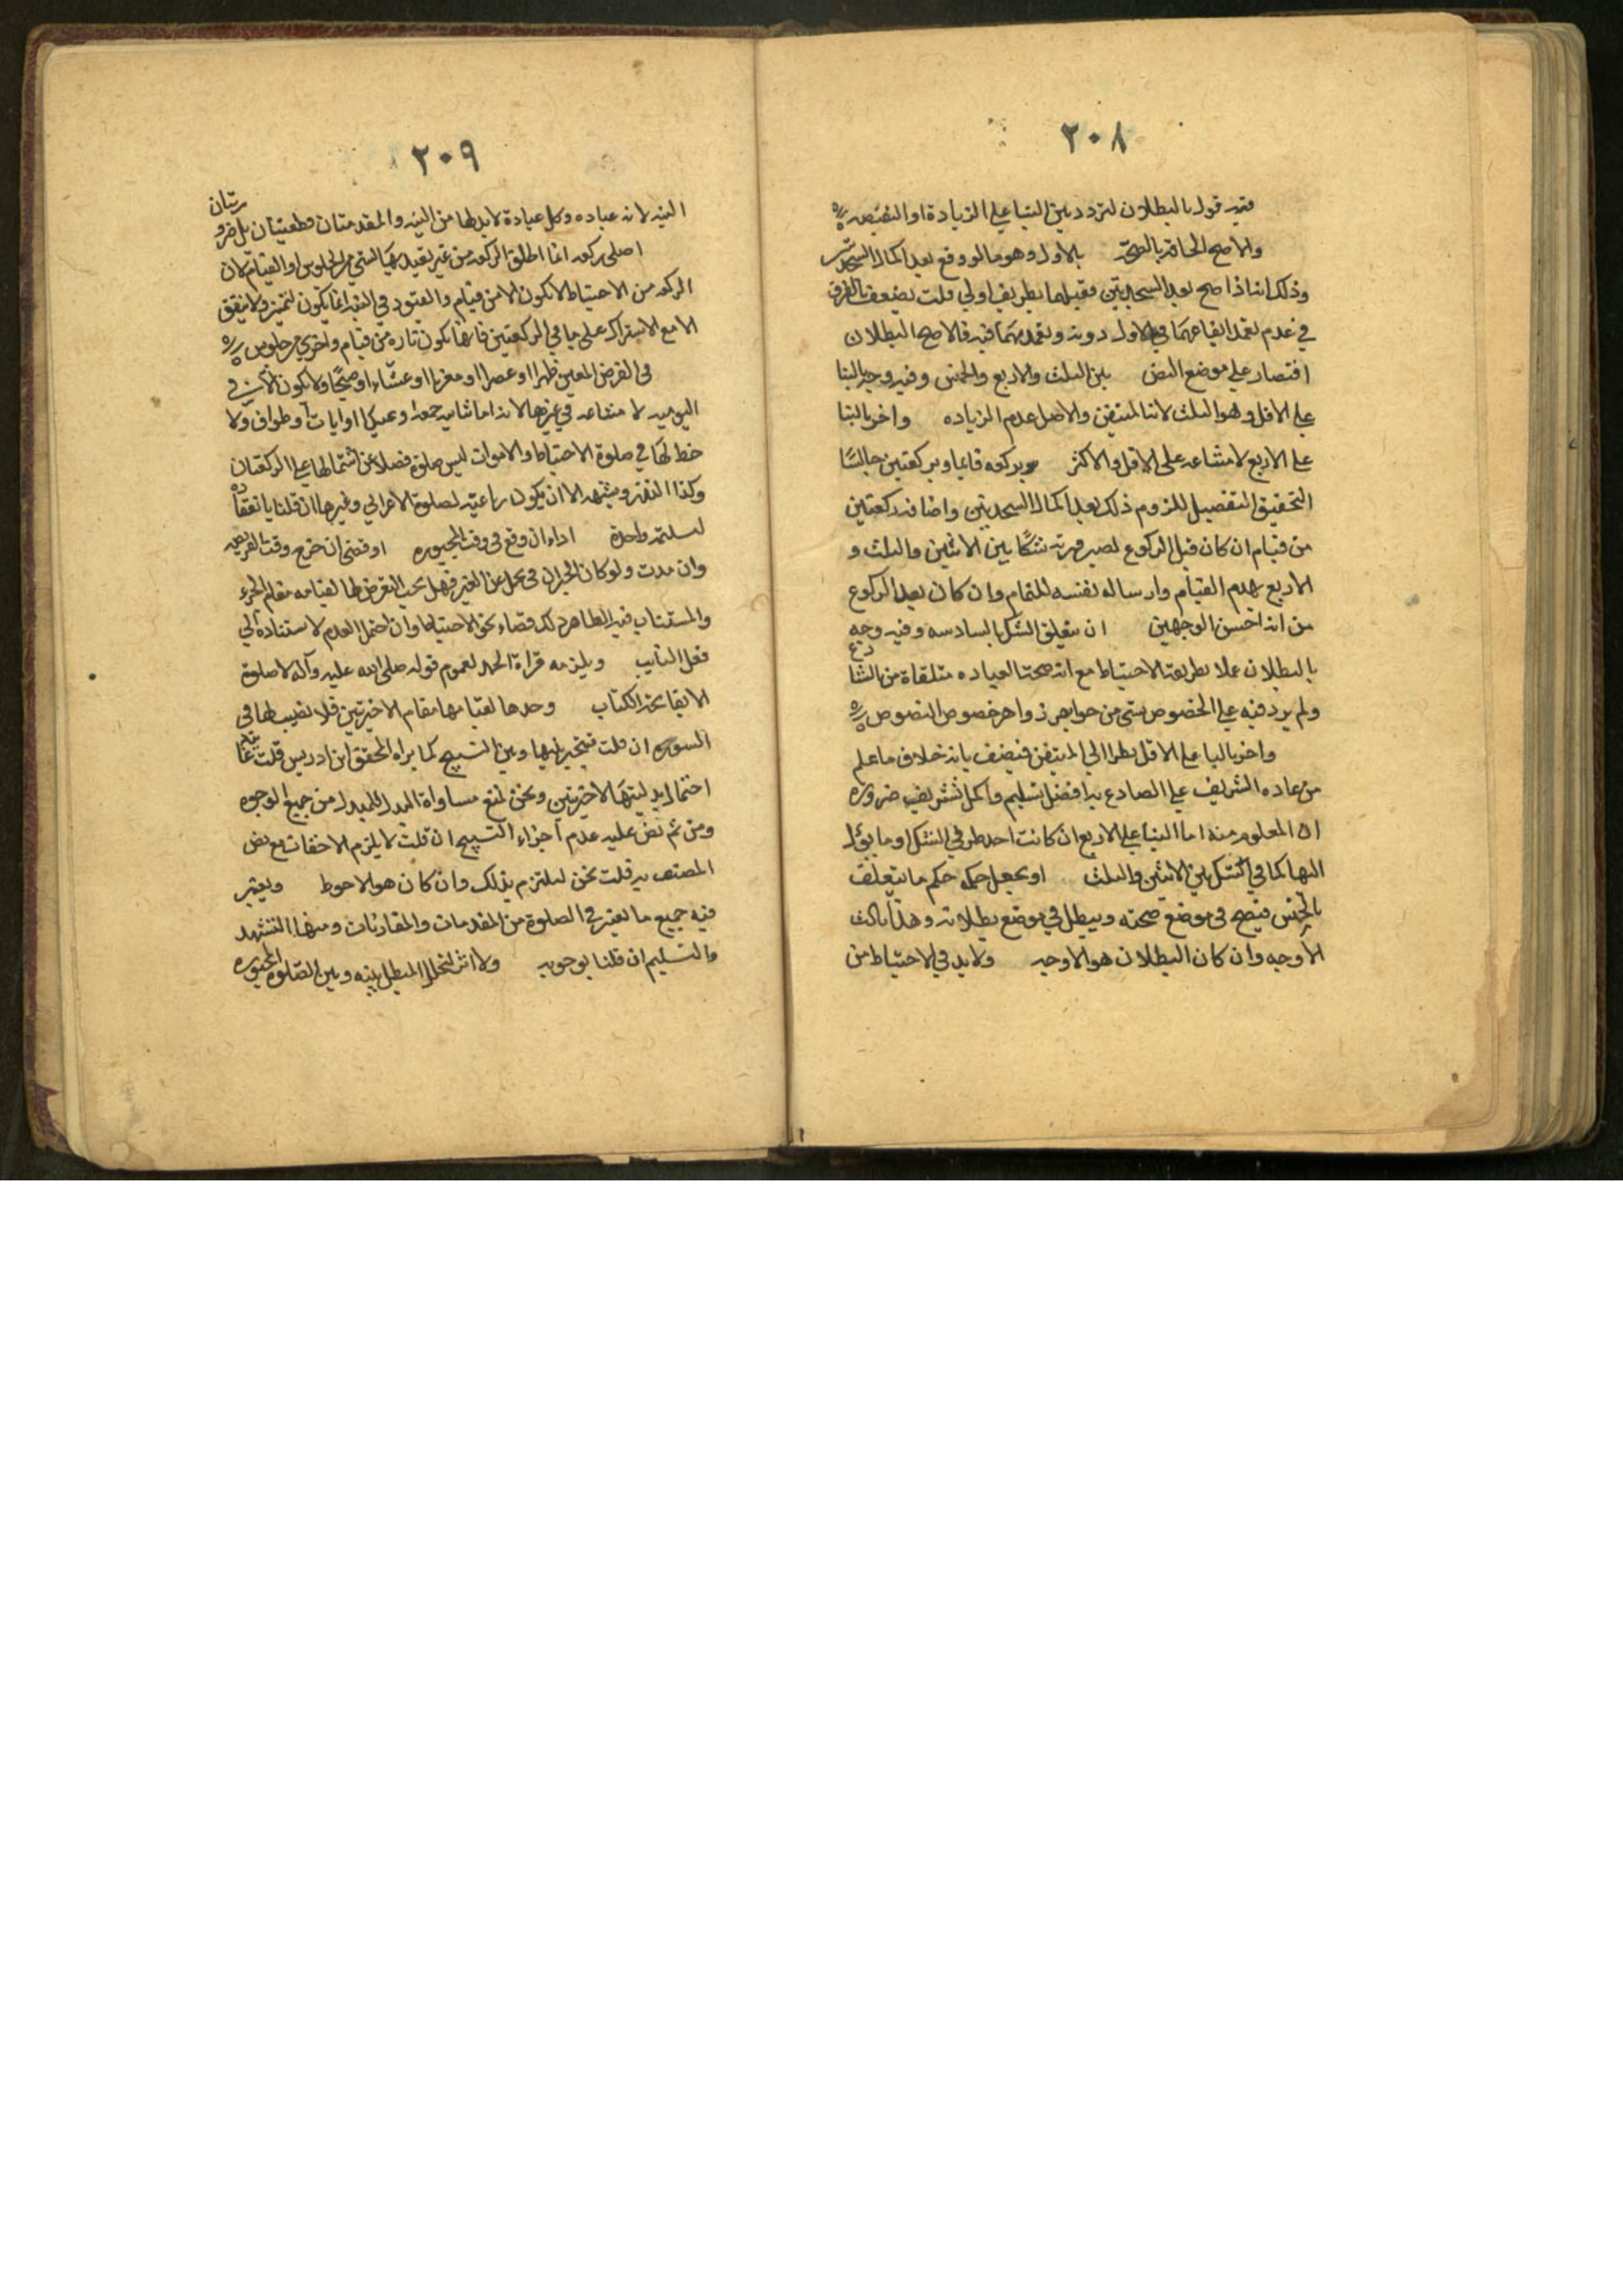 ٢٠٨
فيه قول بالبطلان لتردد بين البنا على الزيادة او النقيصه
والاصح الحاقه بالصحة بالاول وهو ما لو وقع بعد اكمال السجدتين
وذلك اذا صح بعد السجدتين فقبلهما بطريق اولى قلت يضعف بالفرق
في عدم تعمد ايقاعهما في الاول دونه وتعمدهما فيه فالاصح البطلان
اقتصار على موضع النص بين الثلث والاربع والخمس وفيه وجه بالبنا
على الاقل وهو الثلث لانا المتيقن والاصل عدم الزياده واخر بالبنا
على الاربع لا مشاعه على الاقل والاكثر بركعه قايما وبركعتين جالسًا
التحقيق التفصيل للزوم ذلك بعد اكمال السجدتين واضافه ركعتين
من قيام ان كان قبل الركوع لصيرورته شكًا بين الاثنين والثلث و
الاربع بهدم القيام وارساله نفسه للمقام وان كان بعد الركوع
من انه احسن الوجهين ان يتعلق الشك بالسادسه وفيه وجه
بالبطلان عملا بطريقة الاحتياط مع انه صحت العباده متلقاة من الشارع
ولم يرد فيه على الخصوص شي من جوابهم زواهر خصوص النصوص
واخر بالبنا على الاقل نظرا الى المتيقن فيضعف بانه خلاف ما علم
من عاده الشريف على الصادع به افضل تسليم واكمل تشريف ضروره
ان المعلوم منه اما البنا على الاربع ان كانت احد طرفي الشك او ما يؤل
اليها كما في الشك بين الاثنين والثلث او يجعل حكمه حكم ما يتعلق
بالخمس فيصح في موضع صحته ويبطل في موضع بطلانه وهذا ثالث
الاوجه وان كان البطلان هو الاوجه ولا بد في الاحتياط من
٢٠٩
النيه لانه عباده وكل عبادة لا بد لها من النيه والمقدمتان قطعيتان بل ضروريتان
اصلى ركعه انما اطلق الركعه من غير تقييدها بشي من الجلوس او القيام لان
الركعه من الاحتياط لا تكون الا من قيام والقيود في النيه انما تكون لتميز ولا يتفق
الا مع الاشتراك على ما في الركعتين فانها تكون تاره من قيام واخرى من جلوس
في الفرض المعين ظهرا او عصرا او مغربا او عشاء او صبحًا ولا تكون الا في
اليوميه لا مشاعه في غيرها لانه اما ثنائيه جمعه وعيد او ايات او طواف ولا
خط لها في صلوة الاحتياط والاموات ليس صلوة فضلا عن اشتمالها على الركعتان
وكذا النذر وشبهه الا ان يكون رباعيه لصلوة الاعرابي وغيرها ان قلنا بانعقاده
لتسليمه واحدة اداء ان وقع في وقت المجبوره او قضى ان خرج وقت الفريضه
وان مدت ولو كان الجبران في محل عن الغير فهل يجب التعرض لها لقيامه مقام الجزء
والمستناب فيه الظاهر ذلك قضاء بحق الاحتياط وان احتمل العدم لاستناده الى
فعل النايب ويلزمه قراة الحمد لعموم قوله صلى الله عليه وآله لا صلوة
الا بفاتحة الكتاب وحدها لقيامها مقام الاخيرتين فلا نصيب لها في
السوره ان قلت فيتخير بينها وبين التسبيح كما يراه المحقق ابن ادريس قلت غايه
احتمال بدليتها الاخيرتين ونحن نمنع مساواة البدل للمبدل من جميع الوجوه
ومن ثم نص عليه عدم اجزاء التسبيح ان قلت لا يلزم الاخفات مع نص
المصنف به قلت نحن نلتزم بذلك وان كان هو الاحوط ويعتبر
فيه جميع ما يعتبر في الصلوة من المقدمات والمقارنات ومنها التشهد
والتسليم ان قلنا بوجوبه ولا اثر لتخلل المبطل بينه وبين الصلوة المجبوره